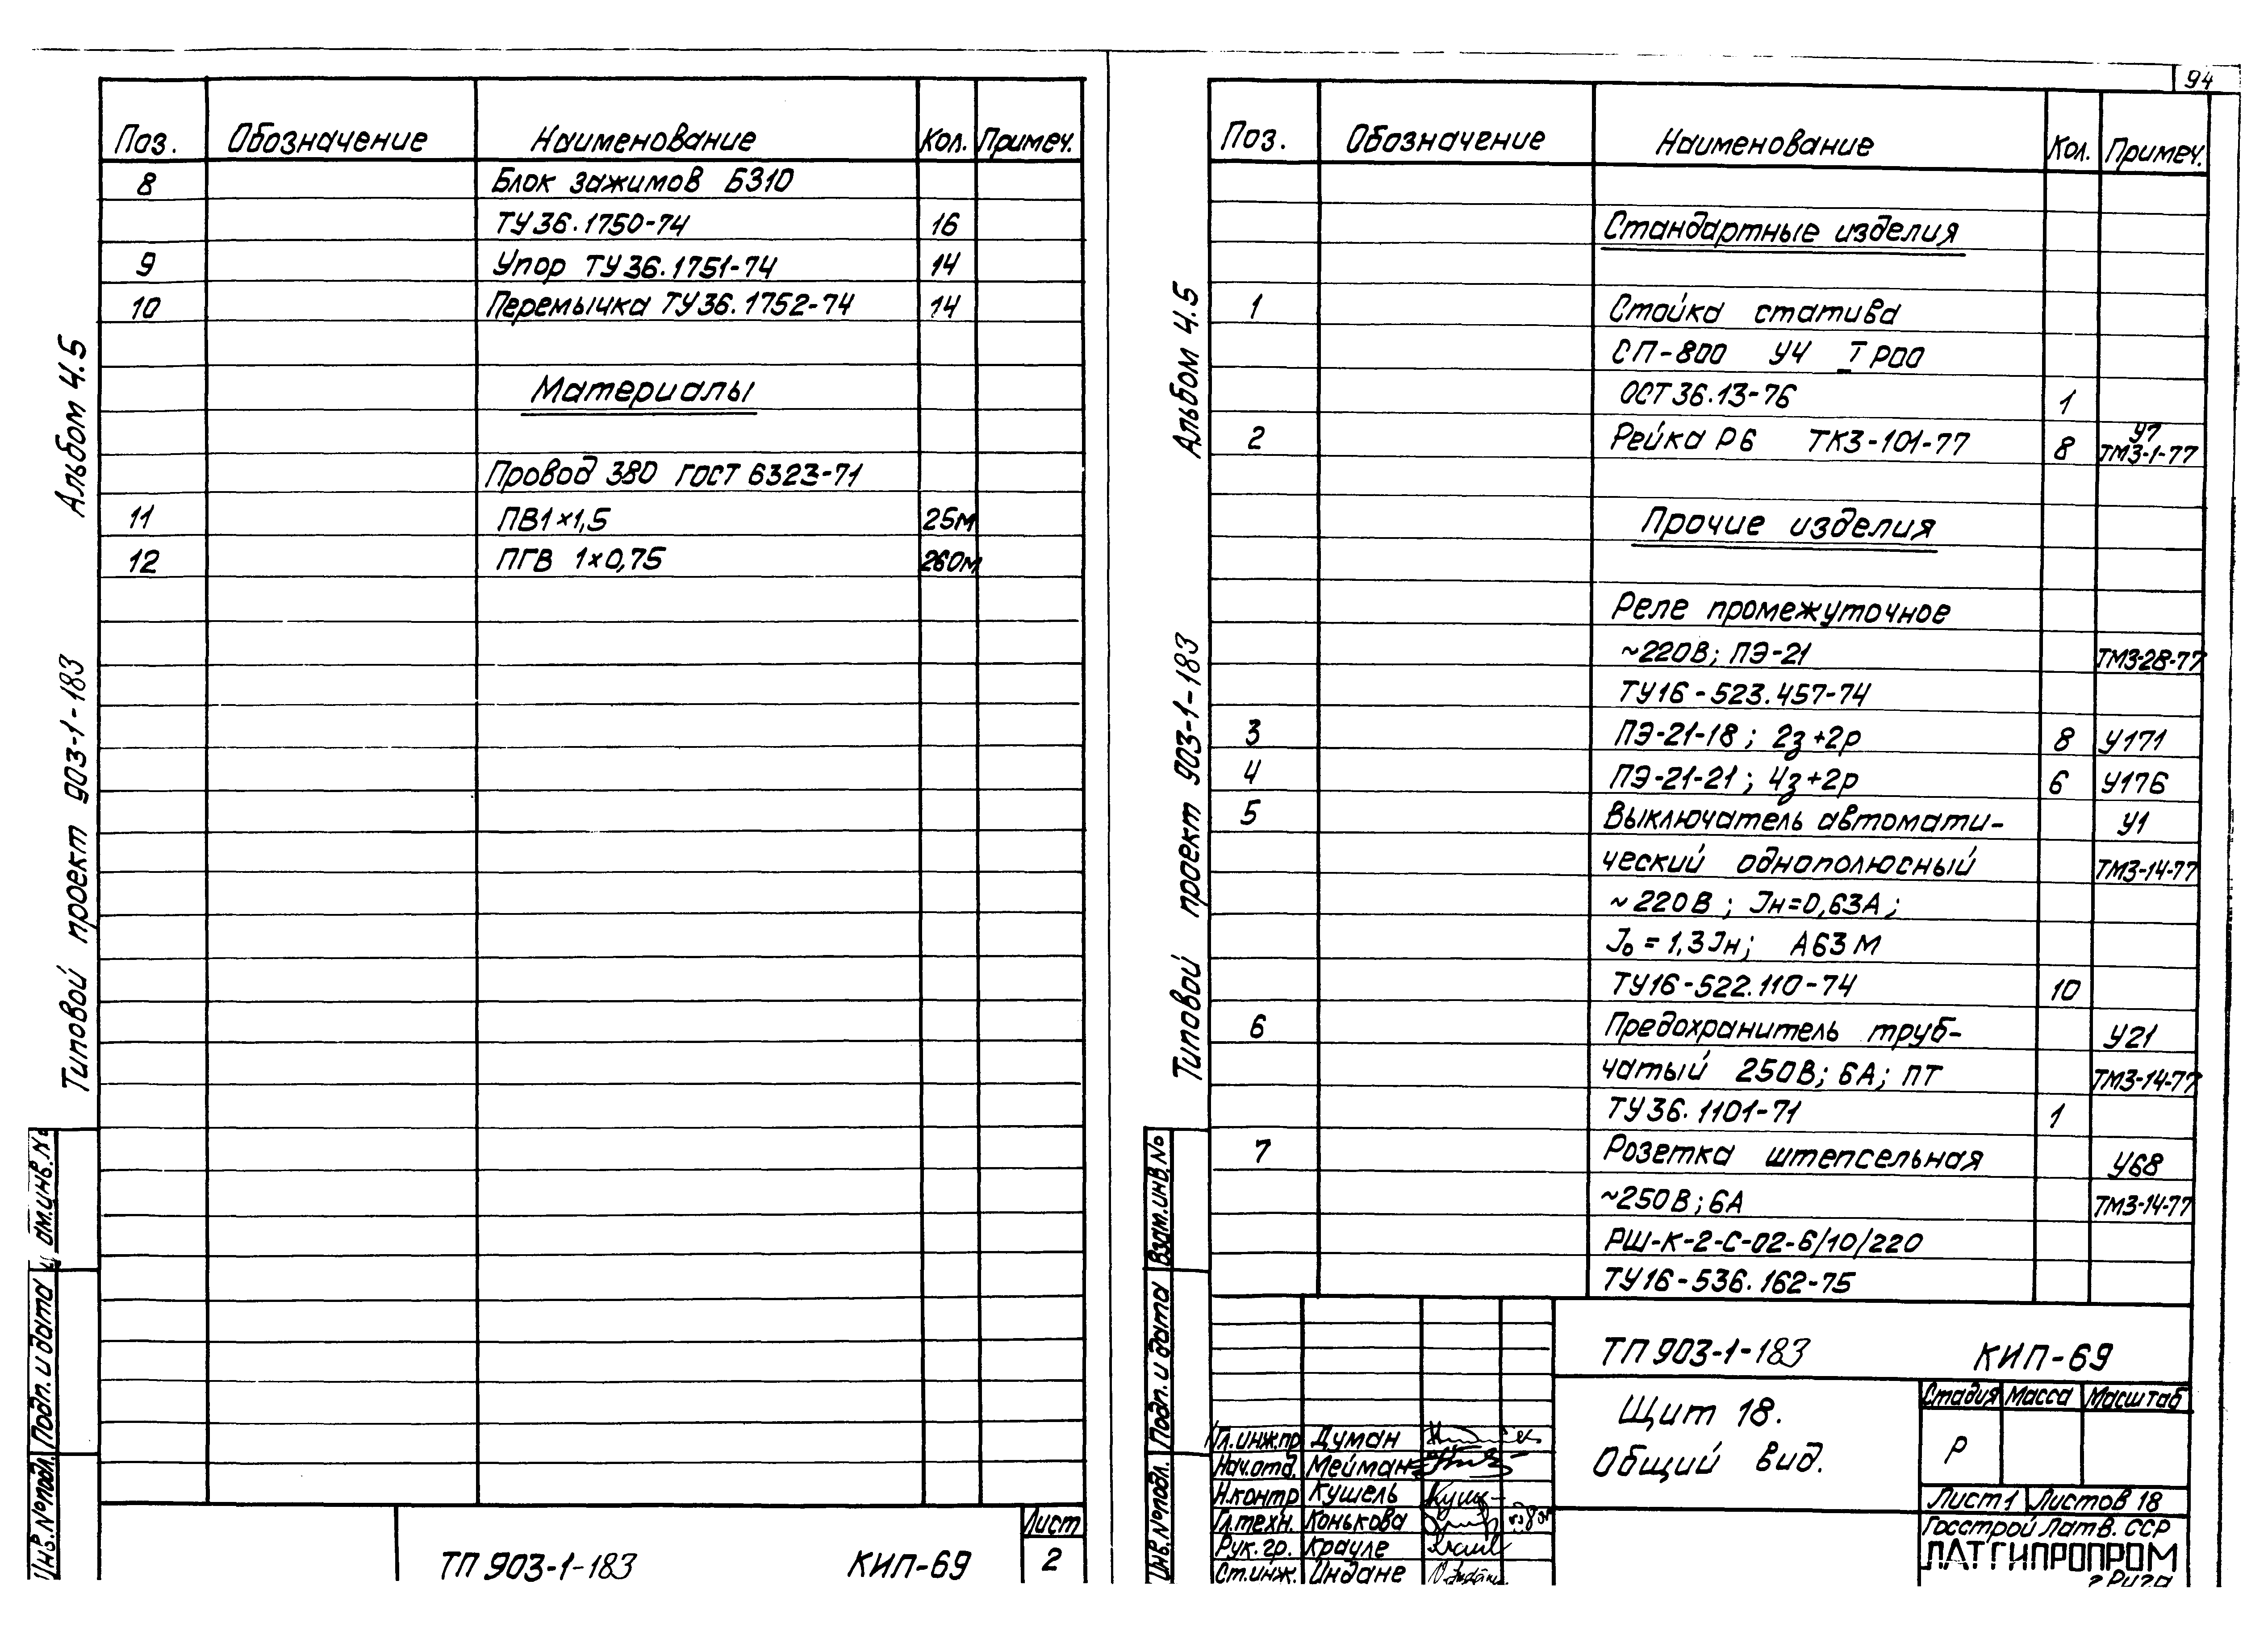 94
Поз. Обозначение Наименование Кол. Примеч.
8 Блок зажимов БЗ10
ТУ36.1750-74 16
9 Упор ТУ36.1751-74 14
10 Перемычка ТУ36.1752-74 14
Материалы
Провод 380 ГОСТ 6323-71
11 ПВ1×1,5 25м
12 ПГВ 1×0,75 260м
Альбом 4.5
Типовой проект 903-1-183
Подп. и дата
Инв.№подл.
ТП 903-1-183 КИП-69
Лист
2
Поз. Обозначение Наименование Кол. Примеч.
Стандартные изделия
1 Стойка статива
СП-800 У4 I Р00
ОСТ 36.13-76 1
2 Рейка Р6 ТК3-101-77 8 У7 ТМ3-1-77
Прочие изделия
Реле промежуточное
~220В; ПЭ-21 ТМ3-28-77
ТУ16-523.457-74
3 ПЭ-21-18; 2з+2р 8 У171
4 ПЭ-21-21; 4з+2р 6 У176
5 Выключатель автомати- У1
ческий однополюсный ТМ3-14-77
~220В; Jн=0,63А;
Jо=1,3Jн; А63М
ТУ16-522.110-74 10
6 Предохранитель труб- У21
чатый 250В; 6А; ПТ ТМ3-14-77
ТУ36.1101-71 1
7 Розетка штепсельная У68
~250В; 6А ТМ3-14-77
РШ-К-2-С-02-6/10/220
ТУ16-536.162-75
Альбом 4.5
Типовой проект 903-1-183
Взам.инв.№
Подп. и дата
Инв.№подл.
ТП 903-1-183 КИП-69
Щит 18.
Общий вид.
Стадия Масса Масштаб
Р
Лист 1 Листов 18
Госстрой Латв. ССР
ЛАТГИПРОПРОМ
г. Рига
Гл.инж.пр Думан
Нач.отд. Мейман
Н.контр Кушель
Гл.техн. Конькова
Рук.гр. Крауле
Ст.инж. Индане